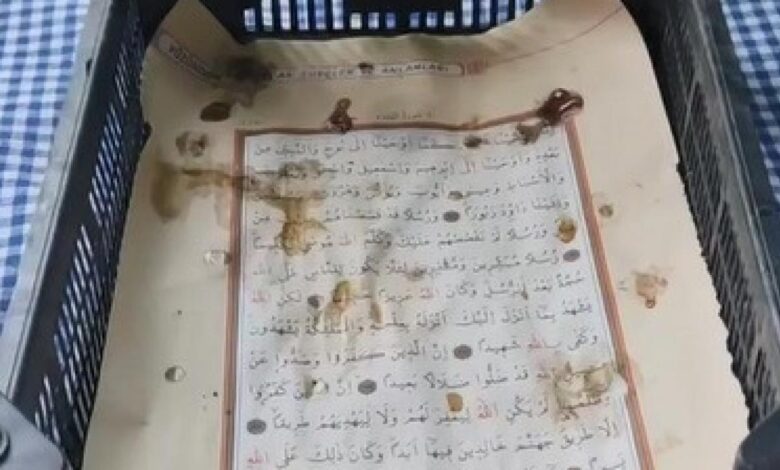 VE ANLAMLARI
كَمَٓا اَوْحَيْنَٓا اِلٰى نُوحٍ وَالنَّبِيّٖنَ مِنْ
بَعْدِهٖ وَاَوْحَيْنَٓا اِلٰٓى اِبْرٰهٖيمَ وَاِسْمٰعٖيلَ
وَالْاَسْبَاطِ وَعٖيسٰى وَاَيُّوبَ وَيُونُسَ وَهٰرُونَ
وَاٰتَيْنَا دَاوُ۫دَ زَبُوراً وَرُسُلاً قَدْ قَصَصْنَاهُمْ مِنْ
وَرُسُلاً لَمْ نَقْصُصْهُمْ عَلَيْكَ وَكَلَّمَ اللّٰهُ مُوسٰى تَكْلٖيماً
رُسُلاً مُبَشِّرٖينَ وَمُنْذِرٖينَ لِئَلَّا يَكُونَ لِلنَّاسِ عَلَى اللّٰهِ
حُجَّةٌ بَعْدَ الرُّسُلِ وَكَانَ اللّٰهُ عَزٖيزاً لٰكِنِ اللّٰهُ
يَشْهَدُ بِمَٓا اَنْزَلَ اِلَيْكَ اَنْزَلَهُ بِعِلْمِهٖ وَالْمَلٰٓئِكَةُ يَشْهَدُونَ
وَكَفٰى بِاللّٰهِ شَهٖيداً اِنَّ الَّذٖينَ كَفَرُوا وَصَدُّوا عَنْ
اللّٰهِ قَدْ ضَلُّوا ضَلَالاً بَعٖيداً اِنَّ الَّذٖينَ كَفَرُوا
لَمْ يَكُنِ اللّٰهُ لِيَغْفِرَ لَهُمْ وَلَا لِيَهْدِيَهُمْ طَرٖيقاً
اِلَّا طَرٖيقَ جَهَنَّمَ خَالِدٖينَ فٖيهَٓا اَبَداً وَكَانَ ذٰلِكَ عَلَى اللّٰهِ